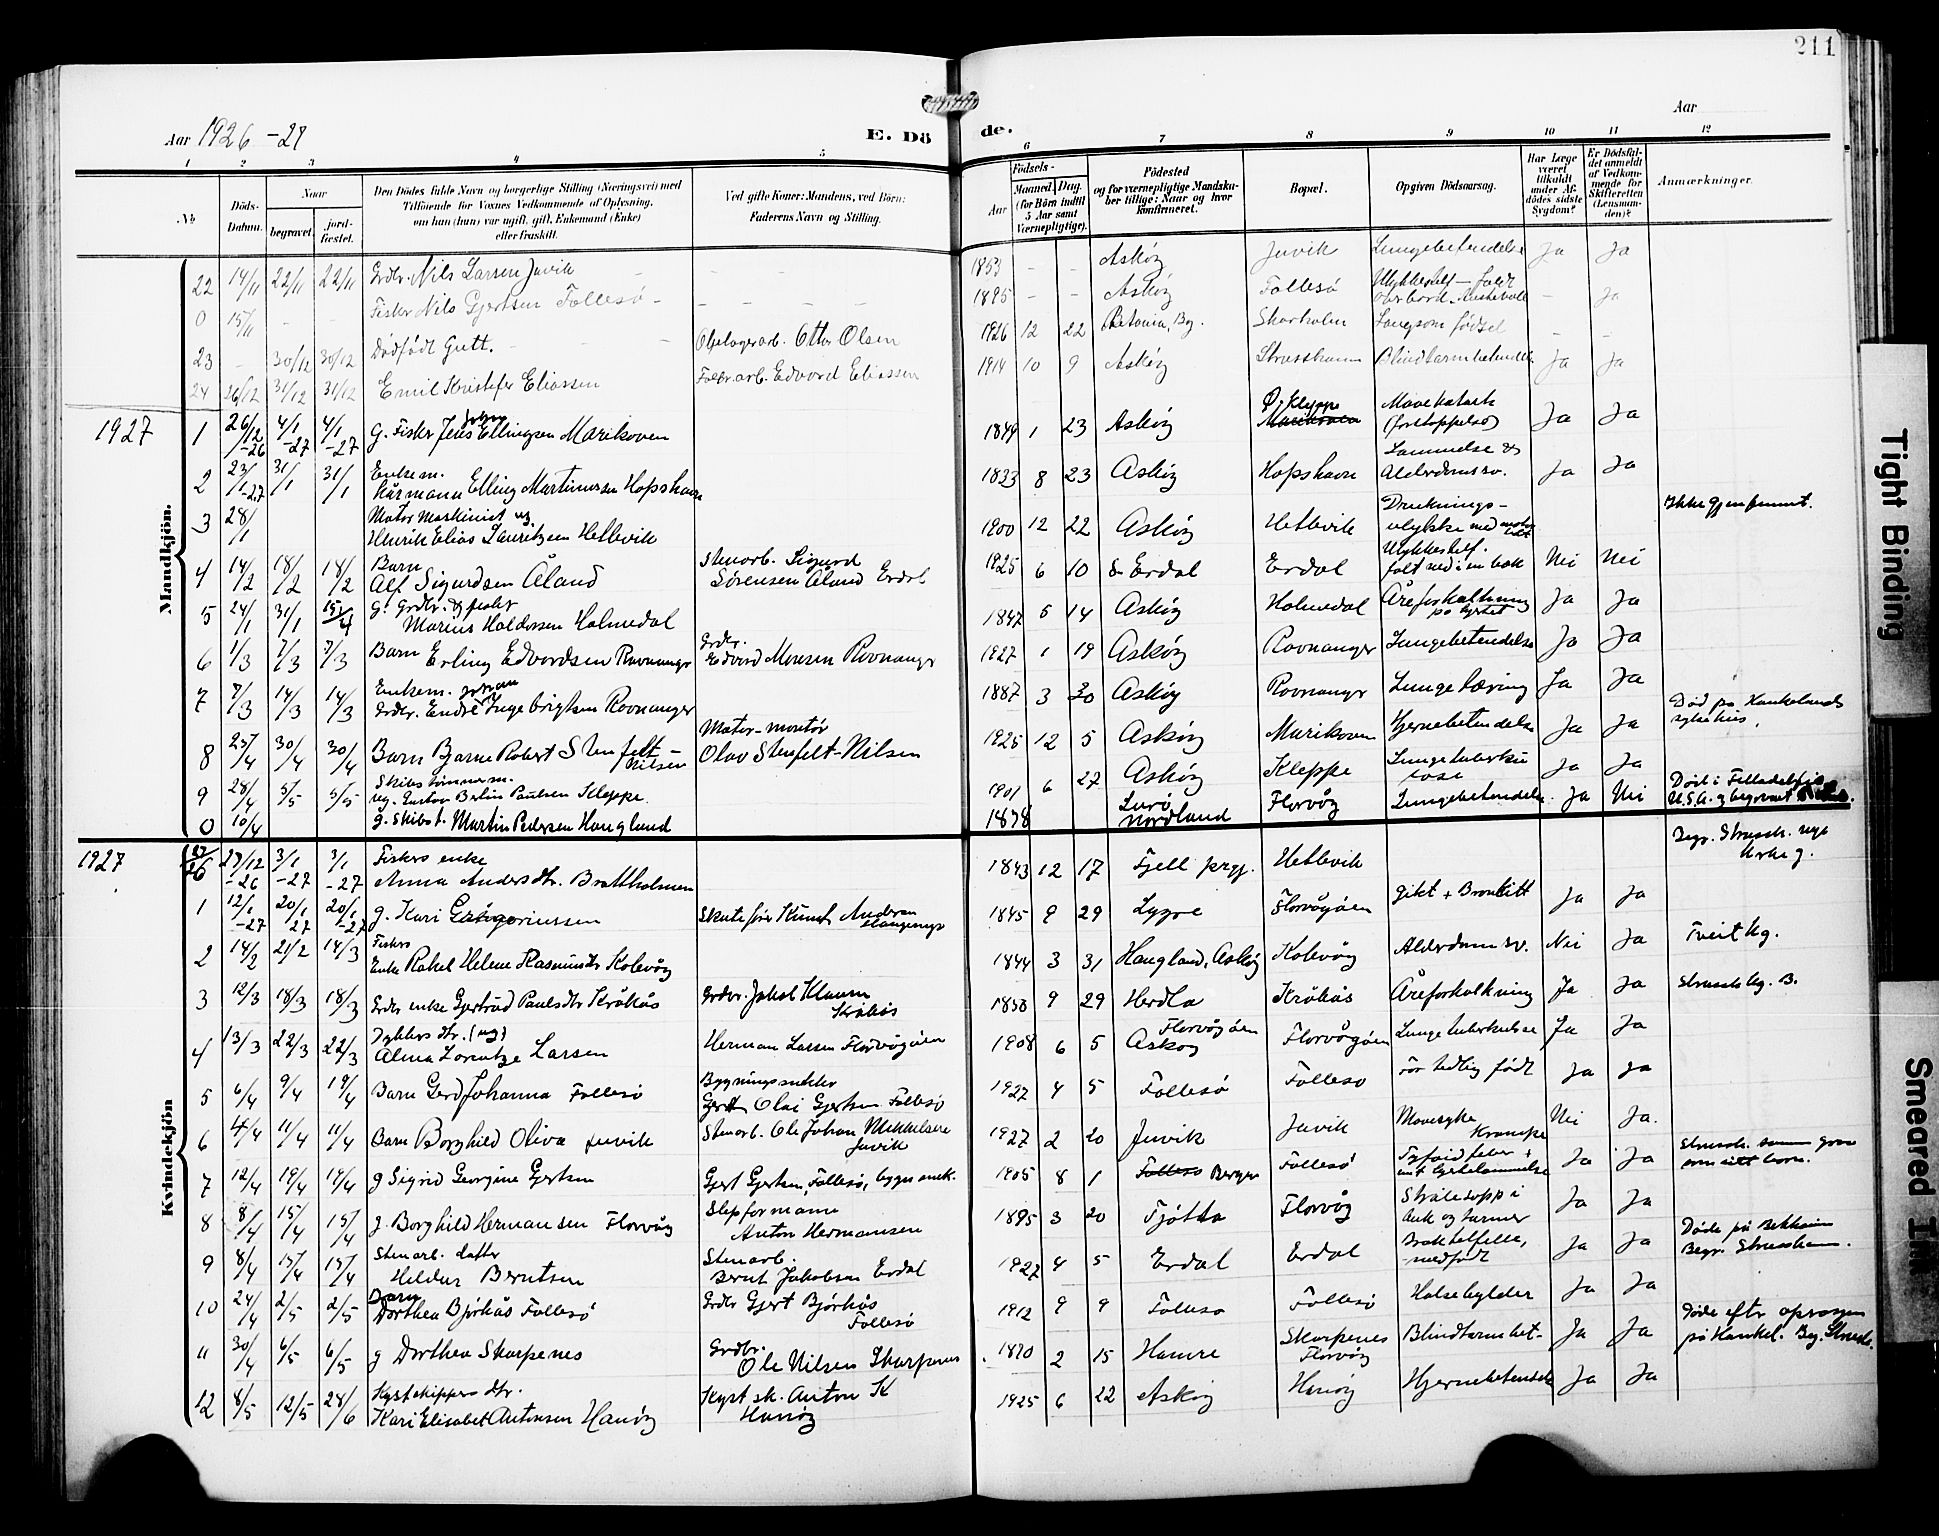 211
Aar 1926-27
E. Dö
de.
Aar
1 2 3 4 5 6 7 8 9 10 11 12
No
Döds-Datum.
Naar
begravet.
jord-fæstet.
Den Dödes fulde Navn og borgerlige Stilling (Næringsvei) med
Tilföiende for Voxnes Vedkommende af Oplysning,
om han (hun) var ugift, gift, Enkemand (Enke)
eller fraskilt.
Ved gifte Koner: Mandens, ved Börn:
Faderens Navn og Stilling.
Födsels-
Aar
Maaned. Dag.
(for Börn indtil
5 Aar samt
Værnepligtige).
Födested
og for værnepligtige Mandska-
ber tillige: Naar og hvor
konfirmeret.
Bopæl.
Opgiven Dödsaarsag.
Har Læge
været
tilkaldt
under Af-
dödes sidste
Sygdom?
Er Dödsfal-
det anmeldt
af Vedkom-
mende for
Skifteretten
(Lensman-
den)?
Anmærkninger.
Mandkjön.
22 14/11 22/11 22/11 Grdbr. Nils Larsen Juvik - - - 1853 - - Askøy Juvik Lungebetendelse Ja Ja
0 15/11 - - Fisker Nils Gjertsen Follesö - - - - - 1895 - - Askøy Follesö Ulykkestilf - faldt overbord - Ja
23 - 30/12 30/12 Dödfödt Gutt. - Otto Olsen 1926 12 22 Betania, Bg. Skarholm Langsom födsel - -
24 26/12 31/12 31/12 Emil Kristofer Eliassen Fabr.arb. Edvard Eliassen 1914 10 9 Askøy Strusshamn Blindtarmbetendelse Ja Ja
1927
1 26/12-26 4/1-27 4/1-27 g. Fisker Jens Johan Ellingsen Marikoven 1849 1 23 Askøy Kleppe Marikoven Mavekatarh (forstoppelse) Ja Ja
2 23/1-27 31/1 31/1 Enkem. Kårmann Elling Martinussen Hopshavn 1833 8 23 Askøy Hopshavn Lammelse & Alderdomssv. Ja Ja
3 28/1 Motor Maskinist ug. Henrik Elias Lauritzsen Hetlevik 1900 12 22 Askøy Hetlevik Druknings- ulykke med motor Ikke gjenfunnet.
4 14/2 18/2 18/2 Barn Alf Sigurdsen Åland Stenarb. Sigurd Sörensen Åland Erdal 1925 6 10 Erdal Erdal Ulykkestilf. falt ned i en bæk Nei Nei
5 24/1 31/1 15/4 g. Grdbr. & fisker Marius Haldorsen Holmedal 1847 5 14 Askøy Holmedal Åreforkalkning på hjertet Ja Ja
6 1/3 7/3 7/3 Barn Erling Edvardsen Ravnanger Grdbr. Edvard Monsen Ravnanger 1927 1 19 Askøy Ravnanger Lungebetendelse Ja Ja
7 7/3 14/3 14/3 Enkem. Johan Grdbr. Endre Ingebrigtsen Ravnanger 1887 3 30 Askøy Ravnanger Lungetæring Ja Ja
8 25/4 30/4 30/4 Barn Bjarne Robert Stenfelt-Nilsen Motor-montör Olav Stenfelt-Nilsen 1925 12 5 Askøy Marikoven Hjernebetendelse Ja Ja Död på Haukelands sykehus.
9 28/4 5/5 5/5 Skibstömmerm. ug. Gustav Berlin Paulsen Kleppe. 1901 6 27 Askøy Kleppe Lungetuberkulose Ja Ja
0 10/4 g. Skibst. Martin Pedersen Haugland 1878 Lurö Nordland Florvåg Lungebetendelse Ja Nei Död i Filladelfia U.S.A. & begravet
1927
Kvindekjön
27/26 27/12-26 3/1-27 3/1-27 Fiskers enke Anna Andersdtr. Brattholmen 1843 12 17 Fjell prgj. Hetlevik Begr. Strussh. nye kirkeg.
1 12/1-27 20/1 27 20/1-27 g. Kari Gregoriussen Skuteför Knut Andersen 1845 9 29 Lygre Florvågöen Gikt + Bronkitt Ja Ja
2 14/2 21/2 14/3 Fiskers Enke Rakel Helene Rasmusdtr Kolevåg 1844 3 31 Haugland, Askøy Kolevåg Alderdomssv. Nei Ja Tveit kg.
3 12/3 18/3 18/3 Grdbr enke Gjertrud Paulsdtr Kråkås Grdbr. Jakob Klausen Kråkås 1858 9 29 Herdla Kråkås Åreforkalkning Ja Ja Strussh kg. B.
4 13/3 22/3 22/3 Dykkers dtr. (ug) Alma Lorentze Larsen Herman Larsen Florvågöen 1908 6 5 Florvågöen Askoy Florvågöen Lungetuberkulose Ja Ja
5 6/4 9/4 19/4 Barn Gerd Johanna Follesö Bygningssnekker Gjert Olai Gjertsen Follesö 1927 4 5 Follesö Follesö for tidlig födt Ja Ja
6 4/4 11/4 11/4 Barn Borghild Oliva Juvik Stenarb. Ole Johan Mikkelsen Juvik 1927 2 20 Juvik Juvik Mavesyke Krampe Nei Ja.
7 12/4 19/4 19/4 g Sigrid Georgine Gjertsen Gjert Gjertsen, Follesö, byggn snek. 1905 8 1 Follesö Bergen Follesö Tyfoid feber + hjertelammelse Ja Ja Strussh. samme grav som sitt barn.
8 8/4 15/4 15/4 g. Borghild Hermansen Florvåg Slepformann Anton Hermansen 1895 3 20 Tjötta Florvåg Strålesopp i buk og tarmer Ja Ja
9 8/4 15/4 15/4 Stenarb. datter Heldur Berntsen Stenarb. Bernt Jakobsen Erdal 1927 4 5 Erdal Erdal Brok tilfelle, medfödt Ja Ja Döde på Betanien Begr. Strusshamn.
10 24/4 2/5 2/5 Barn Dorthea Bjørkås Follesö Grdbr Gjert Bjørkås Follesö 1912 9 9 Follesö Follesö Halsebylder Ja Ja
11 30/4 6/5 6/5 g Dorthea Skarpenes Grdbr. Ole Nilsen Skarpenes 1870 2 15 Hamre Skarpenes Florvåg Blindtarmbet- Ja Ja Döde efter operasjon på Haukel. Beg. Strussh.
12 8/5 12/5 28/6 Kystskippers dtr. Kari Elisabet Antonsen Hanöy Kyst sk. Anton K Hanöy 1925 6 22 Askøy Hanöy Hjernebetendelse Ja Ja
Tight Binding
Smeared Ink